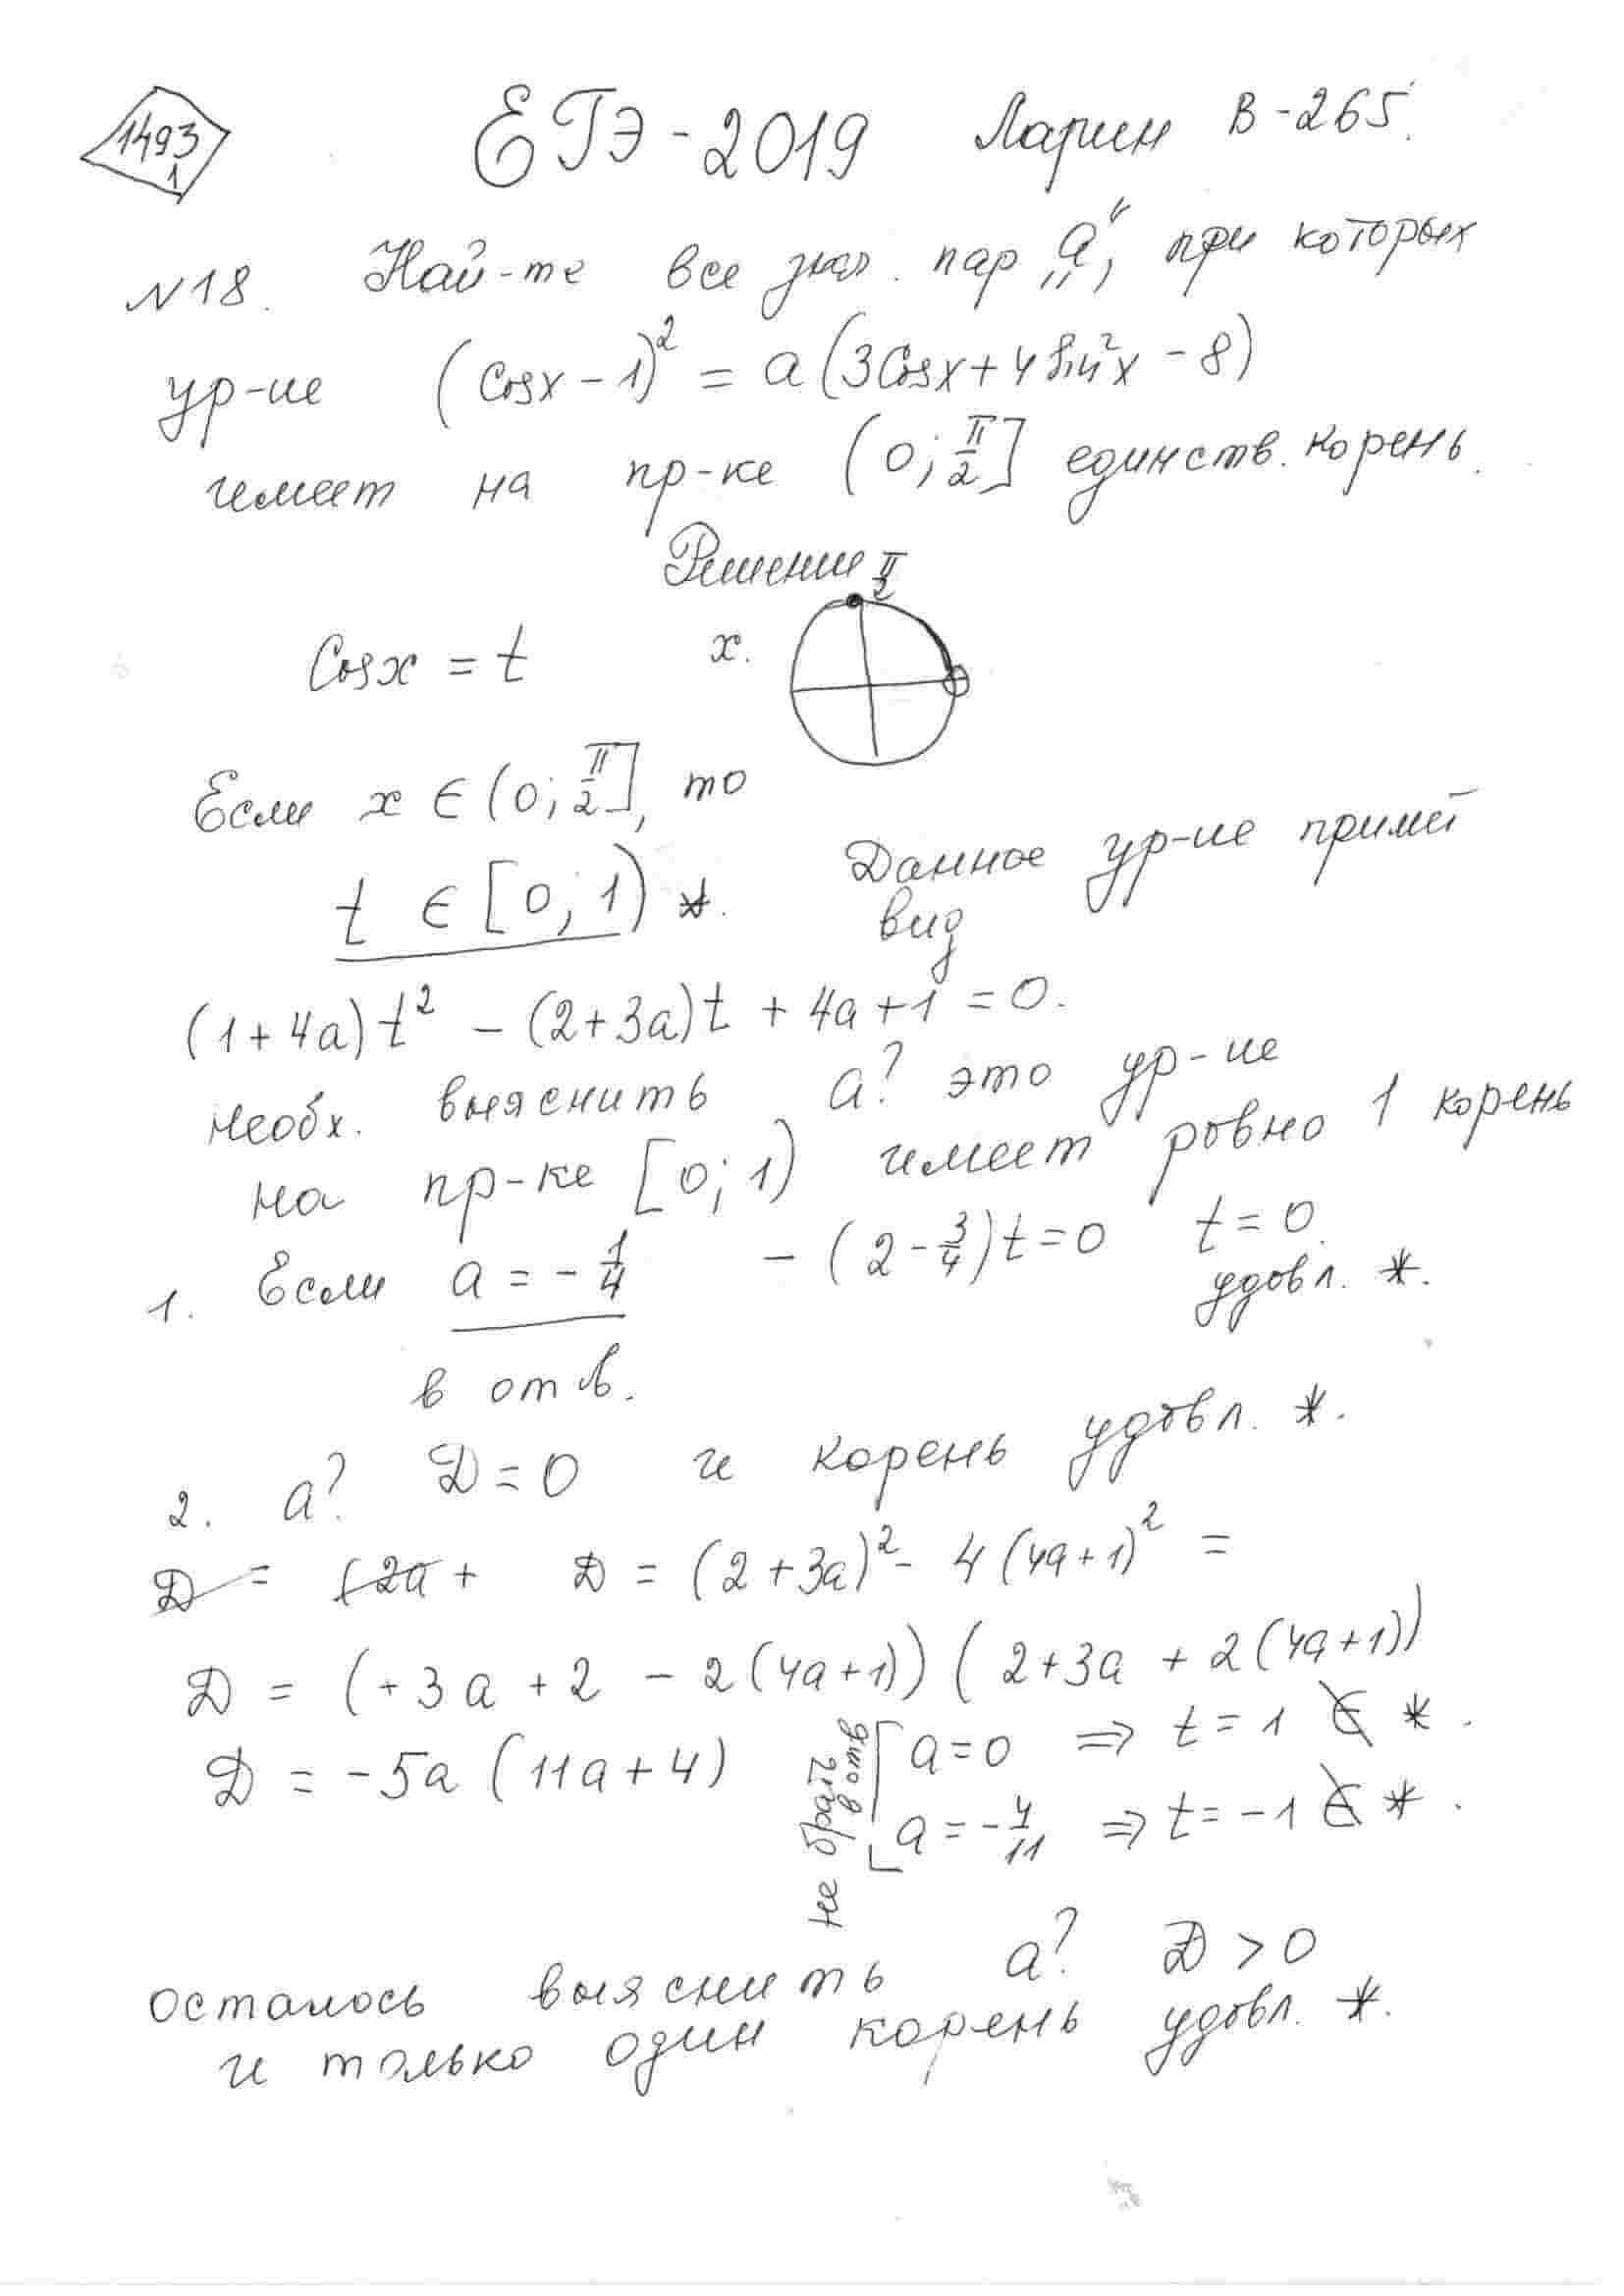 1493
1
ЕГЭ-2019 Ларин В-265.
№18. Най-те все знач. пар „a“, при которых
ур-ие (Cosx - 1)² = a(3Cosx + 4Sin²x - 8)
имеет на пр-ке (0; π/2] единств. корень.
Решение
π/2
Cosx = t x.
Если x ∈ (0; π/2], то
t ∈ [0; 1) *. Данное ур-ие примет
вид
(1+4a)t² - (2+3a)t + 4a+1 = 0.
необх. выяснить a? это ур-ие
на пр-ке [0; 1) имеет ровно 1 корень
1. Если a = -1/4 - (2 - 3/4)t = 0 t = 0.
удовл. *.
в отв.
2. a? D = 0 и корень удовл. *.
D = (2a + D = (2+3a)² - 4(4a+1)² =
D = (+3a + 2 - 2(4a+1))(2+3a + 2(4a+1))
D = -5a(11a+4) a = 0 ⇒ t = 1 ∉ *.
a = -4/11 ⇒ t = -1 ∉ *.
не брать в отв
осталось выяснить a? D > 0
и только один корень удовл. *.